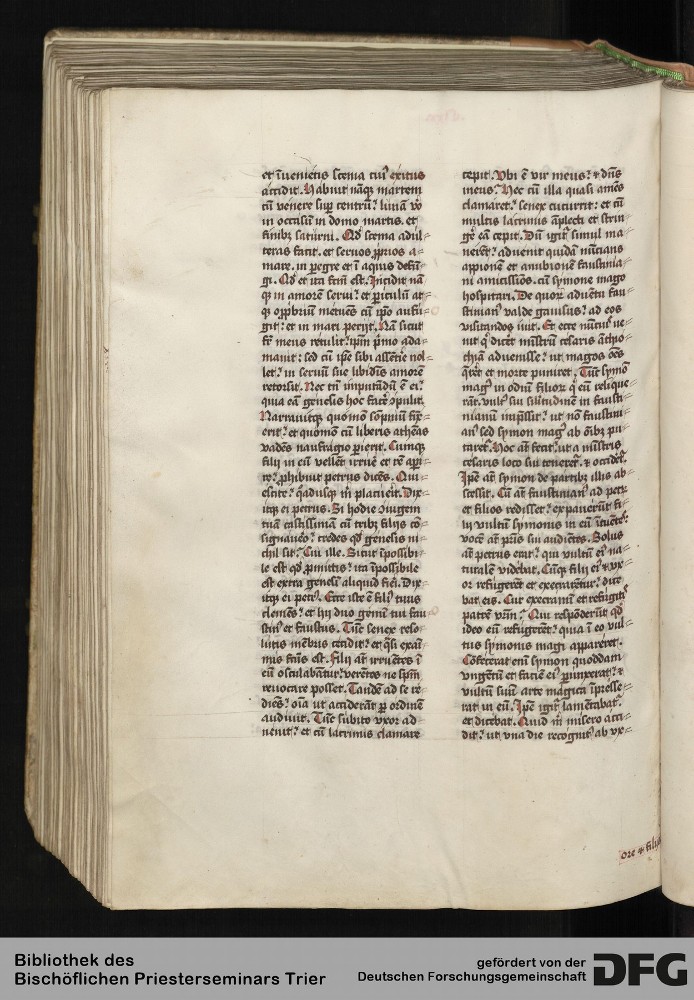 et īuenietis scema cuiꝰ exitus
accidit. Habuit nāqꝫ martem
cū venere suꝑ centrū? lunā vo
in occasu in domo martis. et
finibꝫ saturni. Qd̄ scema adul-
teras facit. et seruos ꝓprios a-
mare. in ꝑegre et ī aquis defū-
gi. Qd̄ et ita fcm̄ est. Incidit nā
qꝫ in amorē serui? et ꝑiculū at-
qꝫ oꝓbriū metuēs cū ip̄o aufu-
git? et in mari perijt. Nā sicut
fr̄ meus retulit? ip̄m p̄mo ada-
mauit: sed cū ip̄e sibi assentīe nol-
let? in seruū sue libidīs amorē
retorsit. Nec tn̄ imputādū ē ei?
quia eā genesis hoc facē ↄpulit.
Narrauitqꝫ quomō sōpniū fīx-
erit? et quomō cū liberis athēas
vadēs naufragio perierit. Cumqꝫ
filij in eū vellēt irruē et rē aꝑi-
re? ꝓhibuit petrus dicēs. Qui-
escite? q̄adusqꝫ m̄ placuēit. Dix-
itqꝫ ei petrus. Si hodie ↄiugem
tuā castissimā cū tribꝫ filijs co-
signauēo? credes qd̄ genesis ni-
chil sit? Cui ille. Sicut īpossibi-
le est qd̄ ꝓmittis? ita īpossibile
est extra genesī aliquid fīeri. Dix-
itqꝫ ei petrꝰ. Ecce iste ē filiꝰ tuus
clemēs? et hij duo gemī tui fau-
stinꝰ et faustus. Tūc senex reso-
lutis mēbris cecidit? et q̄si exaī-
mis fcūs est. Filij at̄ irruētes ī
eū osculabātur? verētes ne spm̄
reuocare posset. Tandē ad se re-
diēs? oīa ut acciderāt ꝑ ordinē
audiuit. Tūc subito vxor ad-
uenit? et cū lacrimis clamare
cepit. Vbi ē vir meus? et dn̄s
meus? Hec cū illa quasi amēs
clamaret? senex cucurrit: et cū
multis lacrimis āplecti et strin-
gē eā cepit. Dū igit simul ma-
nerēt? aduenit quidā nūcians
appionē et anubionē faustinia-
ni amicissīos. cū symone mago
hospitari. De quoꝝ aduētu fau-
stinianꝰ valde gauisus? ad eos
visitandos iuit. Et ecce nūciuꝰ ue-
nit q̄ dicēt mīstrū cesaris āthio-
chiā aduenisse? ut magos oēs
q̄rēt et morte puniret. Tūc symō
magꝰ in odiū filioꝝ q̄ eū relique-
rāt. vultꝰ sui silitudinē in fausti-
nianū imp̄ssit? ut nō faustini-
anꝰ sed symon magꝰ ab oībꝫ pu-
taret. Hoc at̄ fecit? ut a mīstris
cesaris loco sui tenereť et occideť.
Ip̄e at̄ symon de partibꝫ illis ab-
scessit. Cū at̄ faustinianꝰ ad petrū
et filios redisset? expauerūt fi-
lij vultū symonis in eū ītuētes?
vocē at̄ pr̄is sui audiētes. Solus
at̄ petrus erat? qui vultū eiꝰ na-
turalē videbat. Cūqꝫ filij eiꝰ et vx-
or refugerēt et execrarētur? dice
bat eis. Cur execramī et refugitis
patrē vr̄m? Qui respōderūt qd̄
ideo eū refugerēt? quia ī eo vul-
tus symonis magi appareret.
Cōfecerat enī symon quoddam
vngentū et faciē eiꝰ ꝑunxerat? et
vultū suū arte magica īpresse-
rat in eū. Ip̄e igit lamētabať.
et dicebat. Quid m̄ misero acci-
dit? ut vna die recognitꝰ ab vx-
ore et filijs
Bibliothek des
Bischöflichen Priesterseminars Trier
gefördert von der
Deutschen Forschungsgemeinschaft
DFG